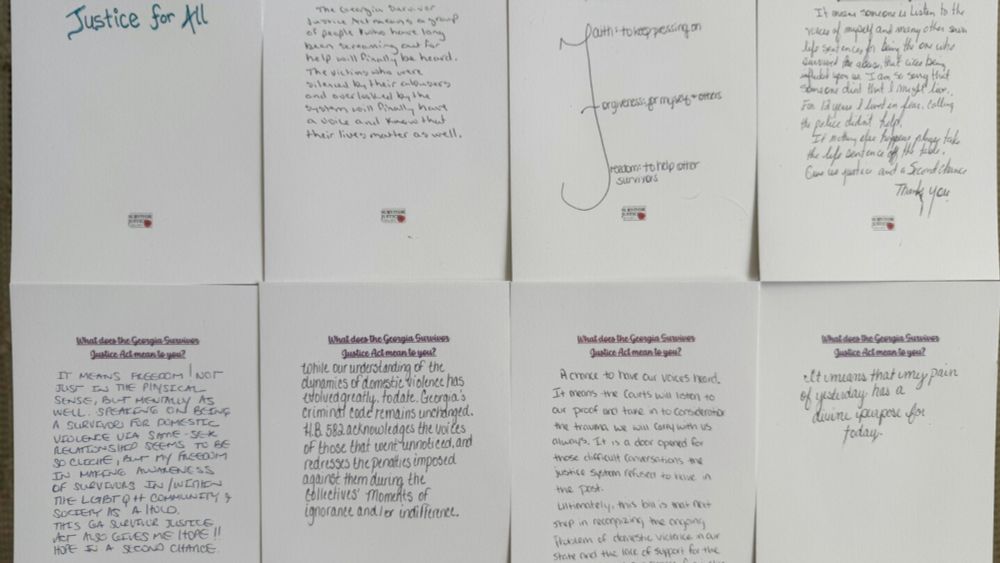 Justice for All
SURVIVOR
JUSTICE
The Georgia Survivor
Justice Act means a group
of people who have long
been screaming out for
help will finally be heard.
The victims who were
silenced by their abusers
and overlooked by the
system will finally have
a voice and know that
their lives matter as well.
SURVIVOR
JUSTICE
Faith: to keep pressing on
Forgiveness: for myself + others
Freedom: to help other
survivors
SURVIVOR
JUSTICE
It means someone is listen to the
voices of myself and many other
life sentences for being the one who
survived the abuse, that was being
upon us. I am so sorry that
someone died that I might live.
For 12 years I lived in fear, calling
the police didn't help.
If nothing else happens please take
the life sentence off the table.
Give us justice and a Second chance
Thank you
SURVIVOR
JUSTICE
What does the Georgia Survivor
Justice Act mean to you?
IT MEANS FREEDOM! NOT
JUST IN THE PHYSICAL
SENSE, BUT MENTALLY AS
WELL. SPEAKING ON BEING
A SURVIVOR FOR DOMESTIC
VIOLENCE VIA SAME-SEX
RELATIONSHIP SEEMS TO BE
SO CLICHE, BUT MY FREEDOM
IN MAKING AWARENESS
OF SURVIVORS IN/WITHIN
THE LGBTQ++ COMMUNITY &
SOCIETY AS A HOLD.
THIS GA SURVIVOR JUSTICE
ACT ALSO GIVES ME HOPE!!
HOPE IN A SECOND CHANCE.
What does the Georgia Survivor
Justice Act mean to you?
While our understanding of the
dynamics of domestic violence has
evolved greatly, to date, Georgia's
criminal code remains unchanged.
H.B. 582 acknowledges the voices
of those that went unnoticed, and
redresses the penalties imposed
against them during the
collectives' moments of
ignorance and/or indifference.
What does the Georgia Survivor
Justice Act mean to you?
A chance to have our voices heard.
It means the Courts will listen to
our proof and take in to consideration
the trauma we will carry with us
always. It is a door opened for
those difficult conversations the
justice system refused to have in
the past.
Ultimately, this bill is that next
step in recognizing the ongoing
problem of domestic violence in our
state and the lack of support for the
What does the Georgia Survivor
Justice Act mean to you?
It means that my pain
of yesterday has a
divine purpose for
today.